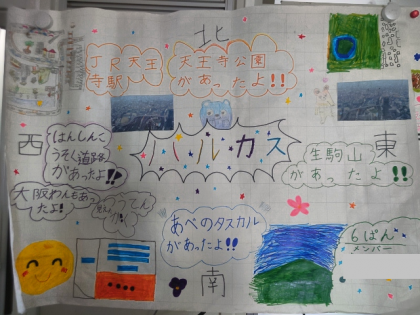 北
JR天王
寺駅
天王寺公園
があったよ!!
西
はんしんこ
うそく道路が
があったよ!!
ハルカス
生駒山
があったよ!!
東
大阪わんもあっ
たよ!
あべのタスカル
があったよ!!
南
6ぱん
メンバー